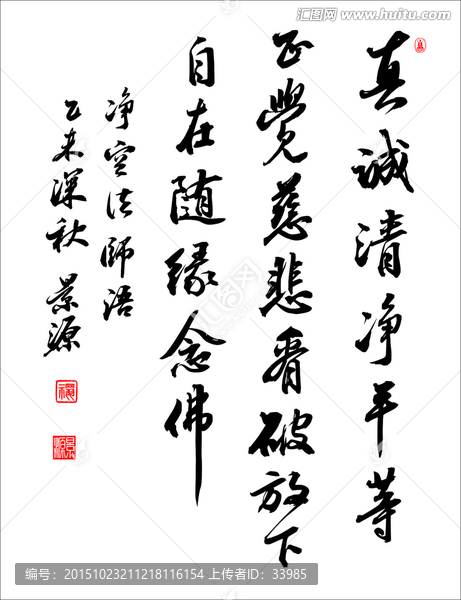 真诚清净平等
正覺慈悲看破放下
自在随缘念佛
净空法師语
乙未深秋 景源
汇图网
www.huitu.com
编号:20151023211218116154 上传者ID:33985